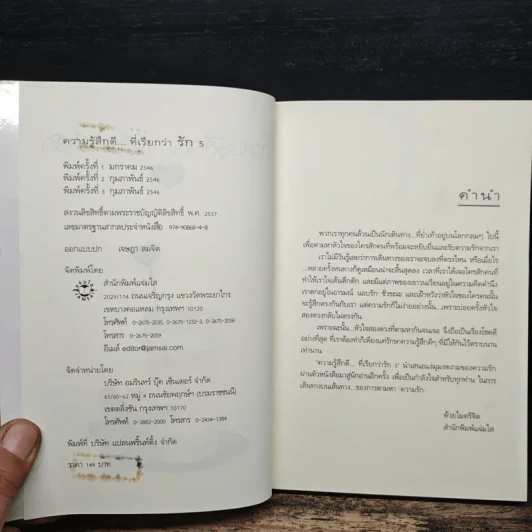 ความรู้สึกดี... ที่เรียกว่า รัก 5
พิมพ์ครั้งที่ 1 มกราคม 2546
พิมพ์ครั้งที่ 2 กุมภาพันธ์ 2546
พิมพ์ครั้งที่ 3 กุมภาพันธ์ 2546
สงวนลิขสิทธิ์ตามพระราชบัญญัติลิขสิทธิ์ พ.ศ. 2537
เลขมาตรฐานสากลประจำหนังสือ 974-90868-4-8
ออกแบบปก เจษฎา สมจิต
จัดพิมพ์โดย
สำนักพิมพ์แจ่มใส
2029/114 ถนนเจริญกรุง แขวงวัดพระยาไกร
เขตบางคอแหลม กรุงเทพฯ 10120
โทรศัพท์ 0-2675-2035, 0-2675-1232-3, 0-2675-2058
โทรสาร 0-2675-2059
อีเมล์ editor@jamsai.com
จัดจำหน่ายโดย
บริษัท อมรินทร์ บุ๊ค เซ็นเตอร์ จำกัด
65/60-62 หมู่ 4 ถนนชัยพฤกษ์ฯ (บรมราชชนนี)
เขตตลิ่งชัน กรุงเทพฯ 10170
โทรศัพท์ 0-2882-2000 โทรสาร 0-2434-1384
พิมพ์ที่ บริษัท แปลนพริ้นท์ติ้ง จำกัด
ราคา 149 บาท
คำนำ
พวกเราทุกคนล้วนเป็นนักเดินทาง...ที่ย่ำเท้าอยู่บนโลกกลมๆ ใบนี้
เพื่อตามหาหัวใจของใครสักคนที่พร้อมจะหยิบยื่นและรับความรักจากเรา
เราไม่มีวันรู้เลยว่าการเดินทางของเราจะจบลงที่ตรงไหน หรือเมื่อไร
...หลายครั้งหนทางก็ดูเหมือนน่าจะสิ้นสุดลง เวลาที่เราได้เจอใครสักคนที่
ทำให้เราใจเต้นตึกตัก และมีแต่ภาพของเขาวนเวียนอยู่ในความคิดคำนึง
เราตกอยู่ในอารมณ์ แอบรัก ข้างเดียว และเฝ้าหวังว่าหัวใจของใครคนนั้น
จะรู้สึกตรงกันกับเรา แต่ความรักก็ไม่ง่ายอย่างนั้น...เพราะบ่อยครั้งหัวใจ
สองดวงกลับไม่ตรงกัน
เพราะฉะนั้น...หัวใจสองดวงที่ตามหากันจนเจอ จึงถือเป็นเรื่องโชคดี
อย่างที่สุด ที่เราต้องทำก็เพียงแค่รักษาความรู้สึกดีๆ ที่มีให้กันไว้ตราบนาน
เท่านาน
'ความรู้สึกดี... ที่เรียกว่ารัก 5' นำเสนอแง่มุมงดงามของความรัก
ผ่านตัวหนังสือมาสู่นักอ่านอีกครั้ง เพื่อเป็นกำลังใจสำหรับทุกท่าน ในการ
เดินทางบนเส้นทาง...ของการตามหา 'ความรัก'
ด้วยไมตรีจิต
สำนักพิมพ์แจ่มใส